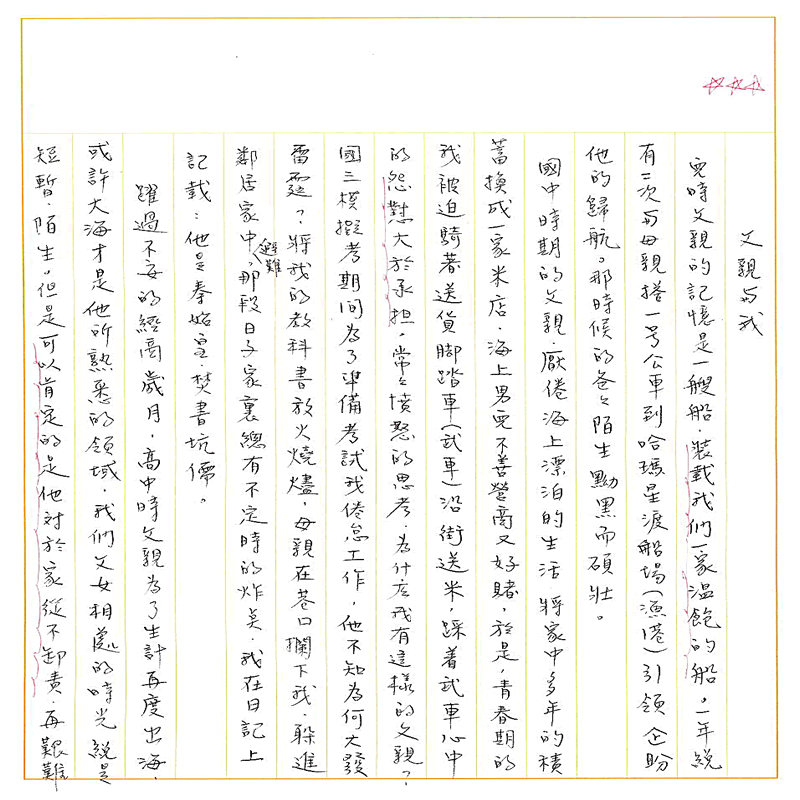 父親与我
兒時父親的記憶是一艘船，裝載我們一家溫飽的船。一年總
有二次与母親搭一号公車到哈瑪星渡船場（漁港）引領企盼
他的歸航。那時候的爸々陌生黝黑而碩壯。
國中時期的父親，厭倦海上漂泊的生活 將家中多年的積
蓄換成一家米店，海上男兒不善營商又好賭，於是，青春期的
我被迫騎著送貨脚踏車（武車）沿街送米，踩着武車心中
的怨懟大於承担，常々憤怒的思考，為什庅我有這樣的父親？
國三模擬考期间為了準備考試我倦怠工作，他不知為何大發
雷霆？將我的教科書放火燒燼，母親在巷口攔下我，躲進
鄰居家中避難，那段日子家裏總有不定時的炸弹，我在日記上
記載：他是秦始皇，焚書坑儒。
躍過不安的經商歲月，高中時父親為了生計再度出海，
或許大海才是他所熟悉的領域，我們父女相處的時光總是
短暫，陌生。但是可以肯定的是他对於家從不卸責，再艱難